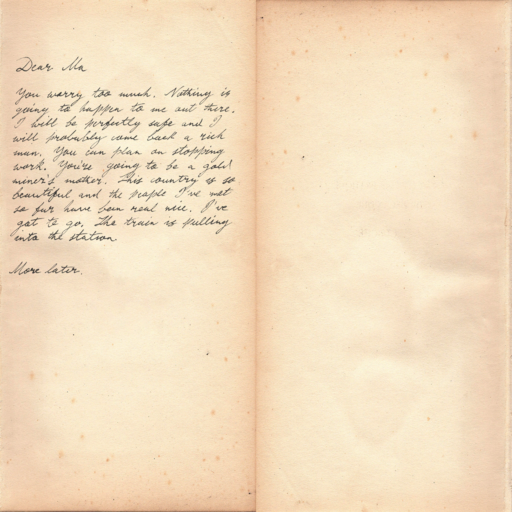 Dear Ma
You worry too much. Nothing is
going to happen to me out there.
I will be perfectly safe and I
will probably come back a rich
man. You can plan on stopping
work. You're going to be a gold
miner's mother. This country is so
beautiful and the people I've met
so far have been real nice. I've
got to go. The train is pulling
into the station
More later.